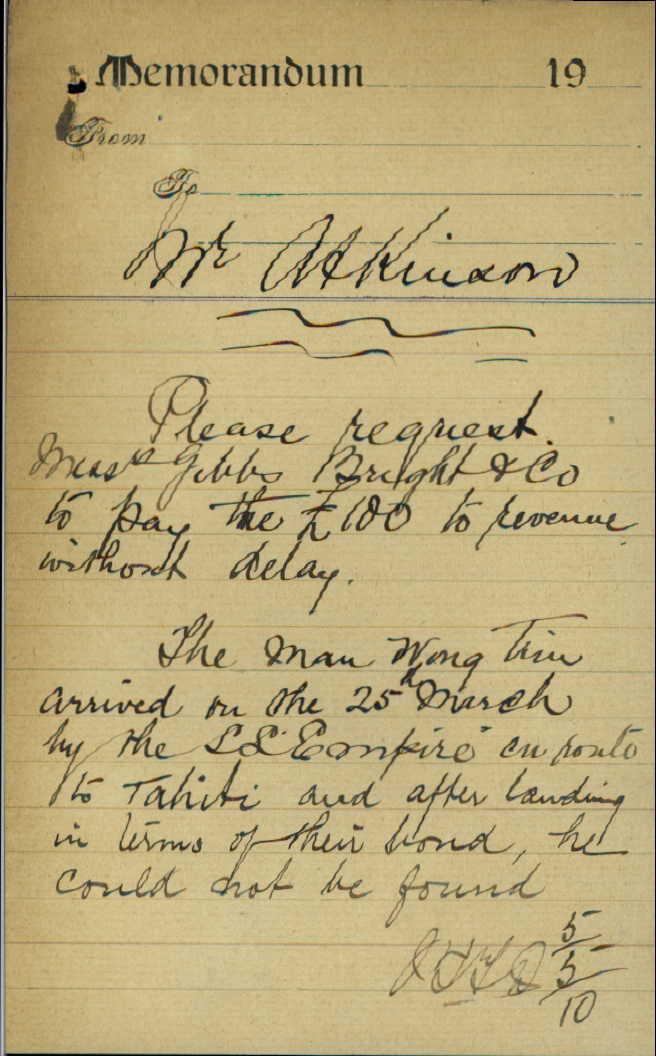 Memorandum 19
From
To
Mr Atkinson
Please request
Messrs Gibbs Bright & Co
to pay the £100 to revenue
without delay.
The man Wong Tim
arrived on the 25th March
by the SS "Empire" en route
to Tahiti and after landing
in terms of their bond, he
could not be found
5
5
10